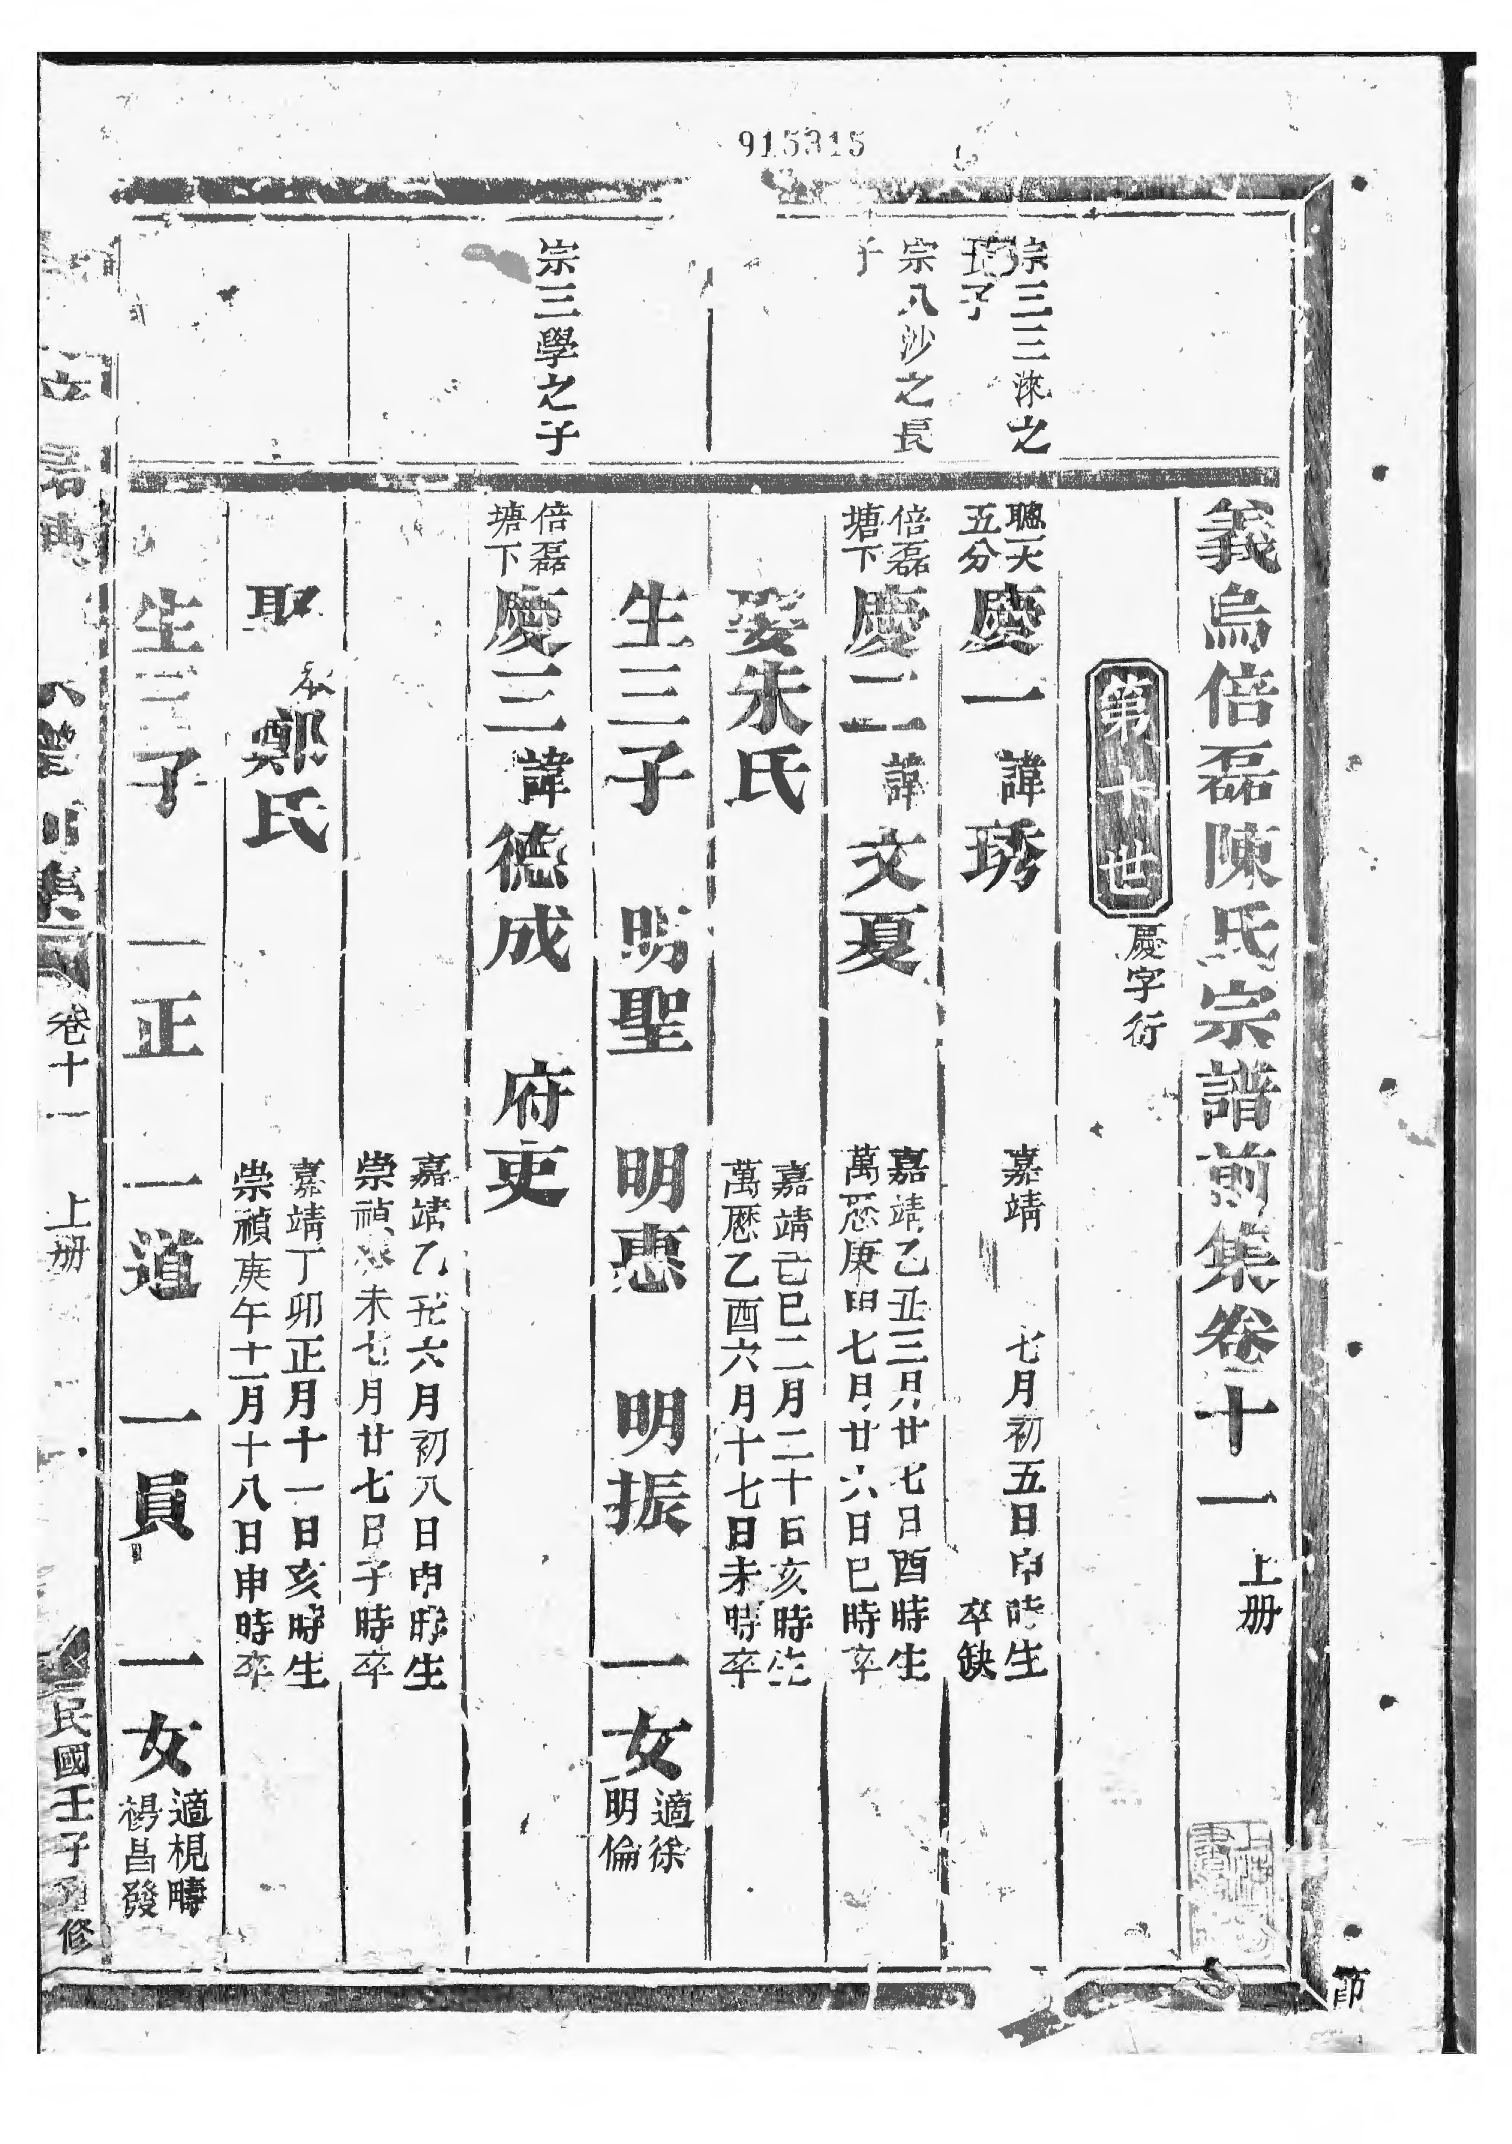 915315
義烏倍磊陳氏宗譜前集卷十一 上册
第十世 慶字行
宗三三淶之
子
聰天
五分
慶一 諱琇
嘉靖 七月初五日申時生
卒缺
宗八沙之長
子
倍磊
塘下
慶二 諱文夏
嘉靖乙丑三月廿七日酉時生
萬歷庚申七月廿六日巳時卒
娶朱氏
嘉靖己巳二月二十日亥時生
萬歷乙酉六月十七日未時卒
生三子 明聖 明惠 明振 一女
適徐
明倫
宗三學之子
倍磊
塘下
慶三 諱德成 府吏
嘉靖乙 六月初八日申時生
崇禎 未七月廿七日子時卒
娶 本 鄭氏
嘉靖丁卯正月十一日亥時生
崇禎庚午十一月十八日申時卒
生三子 一正 一道 一員 一女
適梘疇
楊昌發
卷十一 上册
民國壬子 修
節